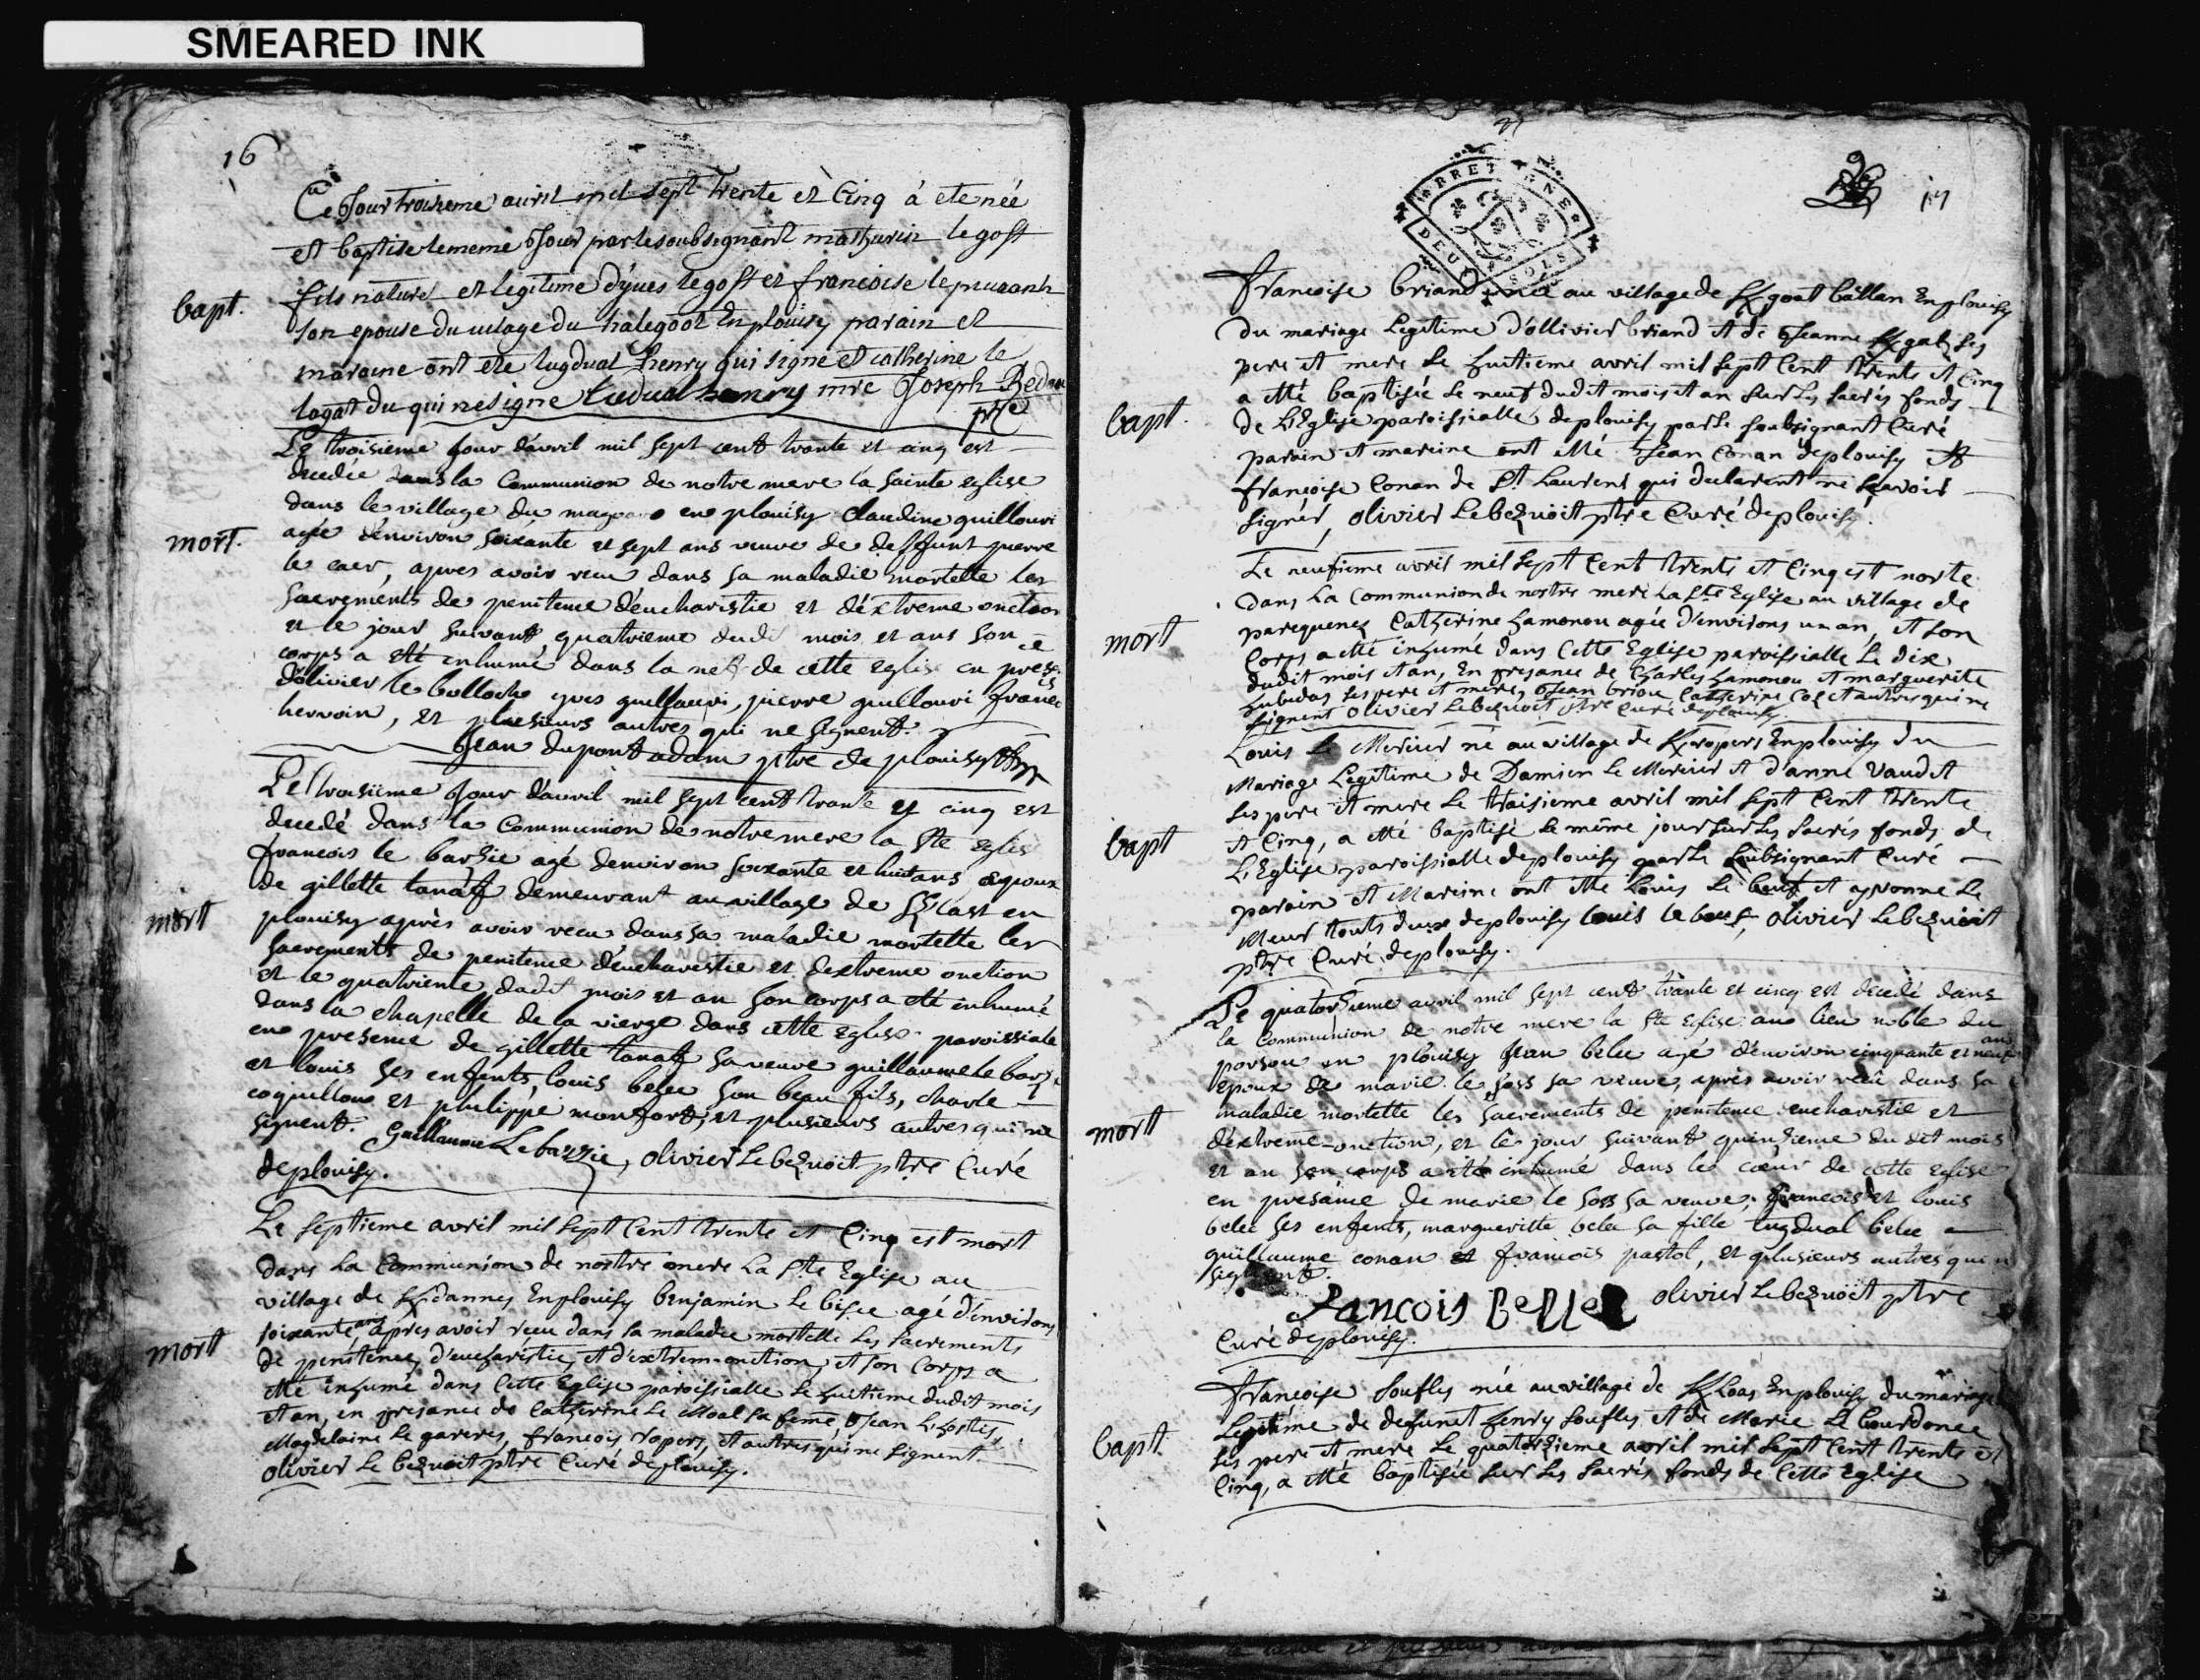 SMEARED INK
16
Ce jour troisieme avril mil sept trente et Cinq à ete neé
et baptise le meme jour par le soubsignant mathurin le goff
bapt.
fils naturel et legitime d'yves le goff et francoise le
son epouse du vilage du halegoöt En plouisy parain et
maraine ont ete tugdual henry qui signe et catherine le
lagat du qui ne signe tudual henry mre Joseph
ptre
Le troisieme jour d'avril mil sept cent trante et cinq est
decedée dans la Communion de notre mere la sainte eglise
dans le village du en plouisy Claudine quillouvi
mort.
agée d'environ soixante et sept ans veuve de deffunt pierre
le caer, apres avoir receu dans sa maladie mortelle les
sacrements de penitence d'eucharistie et d'éxtreme onction
et le jour suivant quatrieme dudit mois et ans son
corps a eté inhumé dans la nef de cette eglise en presē
d'olivier le bulloch yves quillouvi, pierre quillouvi francois
hervoin, et plusieurs autres qui ne signent.
Jean dupont adam ptre de plouisy
Le troisieme jour d'avril mil sept cent trante et cinq est
decedé dans la Communion de notre mere la Ste eglise
francois le barzie agé denviron soixante et huit ans epoux
de gillette tanaff demeurant au village de en
mort
plouisy après avoir receu dans sa maladie mortelle les
sacrements de penitence d'eucharistie et d'extreme onction
et le quatrieme dudit mois et an son corps a eté inhumé
dans la chapelle de la vierge dans cette eglise paroissiale
en presence de gillette tanaff sa veuve guillaume le barzie
et louis ses enfents, louis belec son beau fils, charle
coquillon et philippe monfort, et plusieurs autres qui ne
signent. Guillaume Le barzie, olivier Le bezvoët ptre Curé
de plouisy.
Le septieme avril mil sept Cent trente et Cinq est mort
dans La Communion de nostre mere La Ste Eglise au
village de K/dannes En plouisy benjamin Le bisec agé d'environs
soixante ans apres avoir receu dans sa maladie mortelle Les sacrements
mort
de penitence d'eucharistie, et d'extrem-onction, et son Corps a
etté inhumé dans Cette Eglise paroissialle Le huitieme dudit mois
et an, en presance de Catherine Le Moal sa feme, Jean
Magdelaine Le garrerès, francois ropers, et autres qui ne signent.
olivier Le bezvoët ptre Curé de plouisy.
BRETAGNE
DEUX SOLS
17
francoise briand née au village de K/goat ballan En plouisy
du mariage Legitime d'ollivier briand et de Jeanne K/gal ses
pere et mere Le huitieme avril mil sept Cent trente et Cinq
a etté baptisée Le neuf dudit mois et an sur Les sacrés fonds
bapt.
de L'Eglise paroissialle de plouisy par Le soubsignant Curé
parain et mareine ont etté Jean Conan de plouisy et
françoise Conan de St Laurent qui declarent ne scavoir
signer, olivier Le bezvoët ptre Curé de plouisy.
Le neufieme avril mil sept Cent trente et Cinq est morte
dans La Communion de nostre mere La Ste Eglise au village de
mort
parequenez Catherine hamonou agée d'environs un an, et son
Corps a etté inhumé dans Cette Eglise paroissialle Le dix
dudit mois et an, En presance de Charles hamonou et marguerite
hubudas ses pere et mere, Jean briou Catherine Coz et autres qui ne
signent olivier Le bezvoët ptre Curé de plouisy
Louis Le Mercier né au village de K/ropers En plouisy du
Mariage Legitime de Damien Le Mercier et d'anne Vaudet
ses pere et mere Le troisieme avril mil sept Cent trente
bapt
et Cinq, a etté baptisé Le même jour sur Les sacrés fonds de
L'Eglise paroissialle de plouisy par Le soubsignant Curé
parain et Mareine ont etté Louis Le beuf et yvonne Le
Meur touts deux de plouisy louis le bouf, olivier Le bezvoët
ptre Curé de plouisy.
Le quatorzieme avril mil sept cent trante et cincq est decedé dans
la Communion de notre mere la Ste eglise au lieu noble du
porsou en plouisy Jean belec agé d'environ cinquante et neuf ans
epoux de marie le goss sa veuve, après avoir receu dans sa
mort
maladie mortelle les sacrements de penitence eucharistie et
d'éxtreme-onction, et le jour suivant quinzieme du dit mois
et an son corps a eté inhumé dans le cœur de cette eglise
en presance de marie le goss sa veuve, francois et louis
belec ses enfents, marguerite belec sa fille tugdual belec
guillaume conan et francois pastol, et plusieurs autres qui
signent.
Francois Bellec olivier Le bezvoët ptre
Curé de plouisy.
françoise souflès née au village de K/Loas En plouisy du mariage
bapt.
Legitime de defunct henry souflès et de Marie Le Courdonec
ses pere et mere Le quatorzieme avril mil sept Cent trente et
Cinq, a etté baptisée sur Les sacrés fonds de Cette Eglise